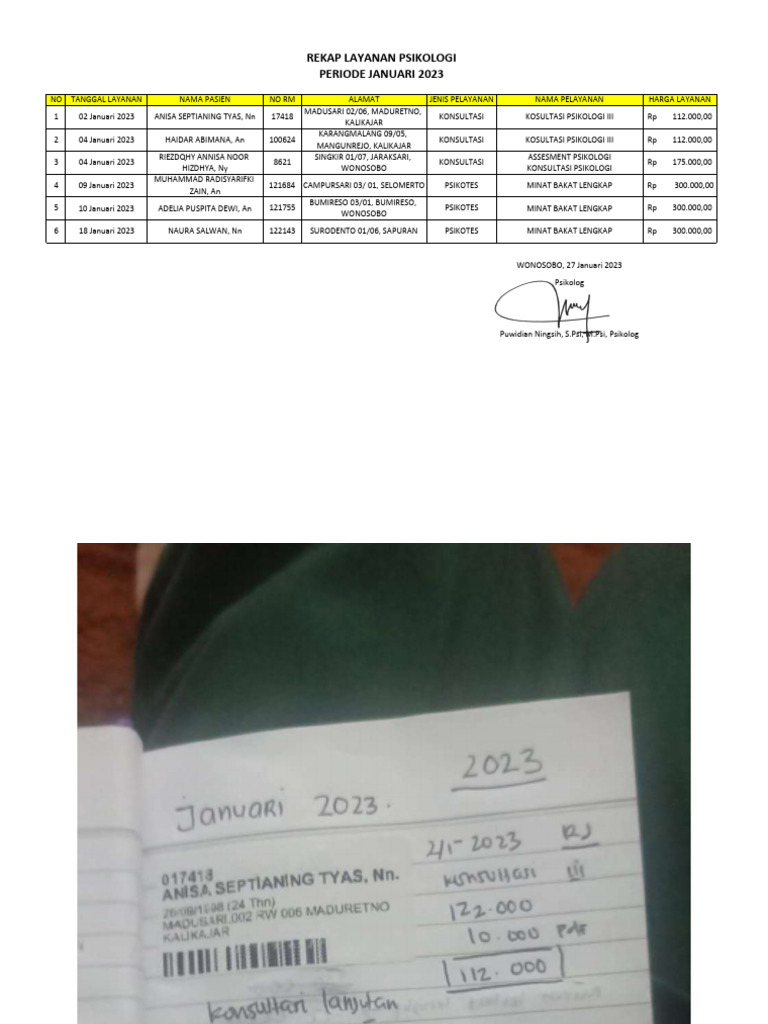 REKAP LAYANAN PSIKOLOGI
PERIODE JANUARI 2023
NO TANGGAL LAYANAN NAMA PASIEN NO RM ALAMAT JENIS PELAYANAN NAMA PELAYANAN HARGA LAYANAN
1 02 Januari 2023 ANISA SEPTIANING TYAS, Nn 17418 MADUSARI 02/06, MADURETNO, KALIKAJAR KONSULTASI KOSULTASI PSIKOLOGI III Rp 112.000,00
2 04 Januari 2023 HAIDAR ABIMANA, An 100624 KARANGMALANG 09/05, MANGUNREJO, KALIKAJAR KONSULTASI KOSULTASI PSIKOLOGI III Rp 112.000,00
3 04 Januari 2023 RIEZDQHY ANNISA NOOR HIZDHYA, Ny 8621 SINGKIR 01/07, JARAKSARI, WONOSOBO KONSULTASI ASSESMENT PSIKOLOGI KONSULTASI PSIKOLOGI Rp 175.000,00
4 09 Januari 2023 MUHAMMAD RADISYARIFKI ZAIN, An 121684 CAMPURSARI 03/ 01, SELOMERTO PSIKOTES MINAT BAKAT LENGKAP Rp 300.000,00
5 10 Januari 2023 ADELIA PUSPITA DEWI, An 121755 BUMIRESO 03/01, BUMIRESO, WONOSOBO PSIKOTES MINAT BAKAT LENGKAP Rp 300.000,00
6 18 Januari 2023 NAURA SALWAN, Nn 122143 SURODENTO 01/06, SAPURAN PSIKOTES MINAT BAKAT LENGKAP Rp 300.000,00
WONOSOBO, 27 Januari 2023
Psikolog
Puwidian Ningsih, S.Psi, M.Psi, Psikolog
2023
januari 2023.
2/1-2023 RJ
017418
ANISA, SEPTIANING TYAS, Nn.
26/09/1998 (24 Thn)
MADUSARI,002 RW 006 MADURETNO
KALIKAJAR
konsultasi III
122.000
10.000
112.000
konsultasi lanjutan